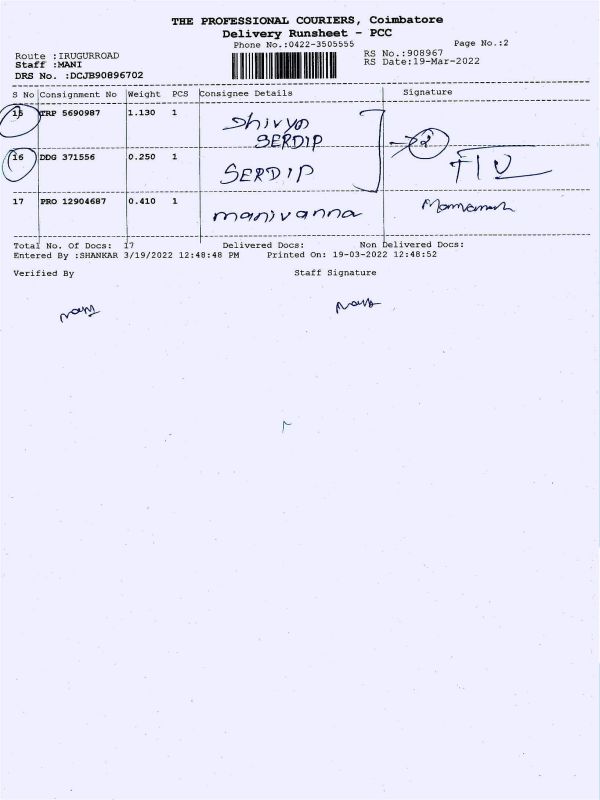 THE PROFESSIONAL COURIERS, Coimbatore
Delivery Runsheet - PCC
Phone No.:0422-3505555 Page No.:2
Route :IRUGURROAD RS No.:908967
Staff :MANI RS Date:19-Mar-2022
DRS No. :DCJB90896702
S No Consignment No Weight PCS Consignee Details Signature
15 TRP 5690987 1.130 1 Shivya
SERDIP 2
16 DDG 371556 0.250 1 SERDIP
17 PRO 12904687 0.410 1 manivanna
Total No. Of Docs: 17 Delivered Docs: Non Delivered Docs:
Entered By :SHANKAR 3/19/2022 12:48:48 PM Printed On: 19-03-2022 12:48:52
Verified By Staff Signature